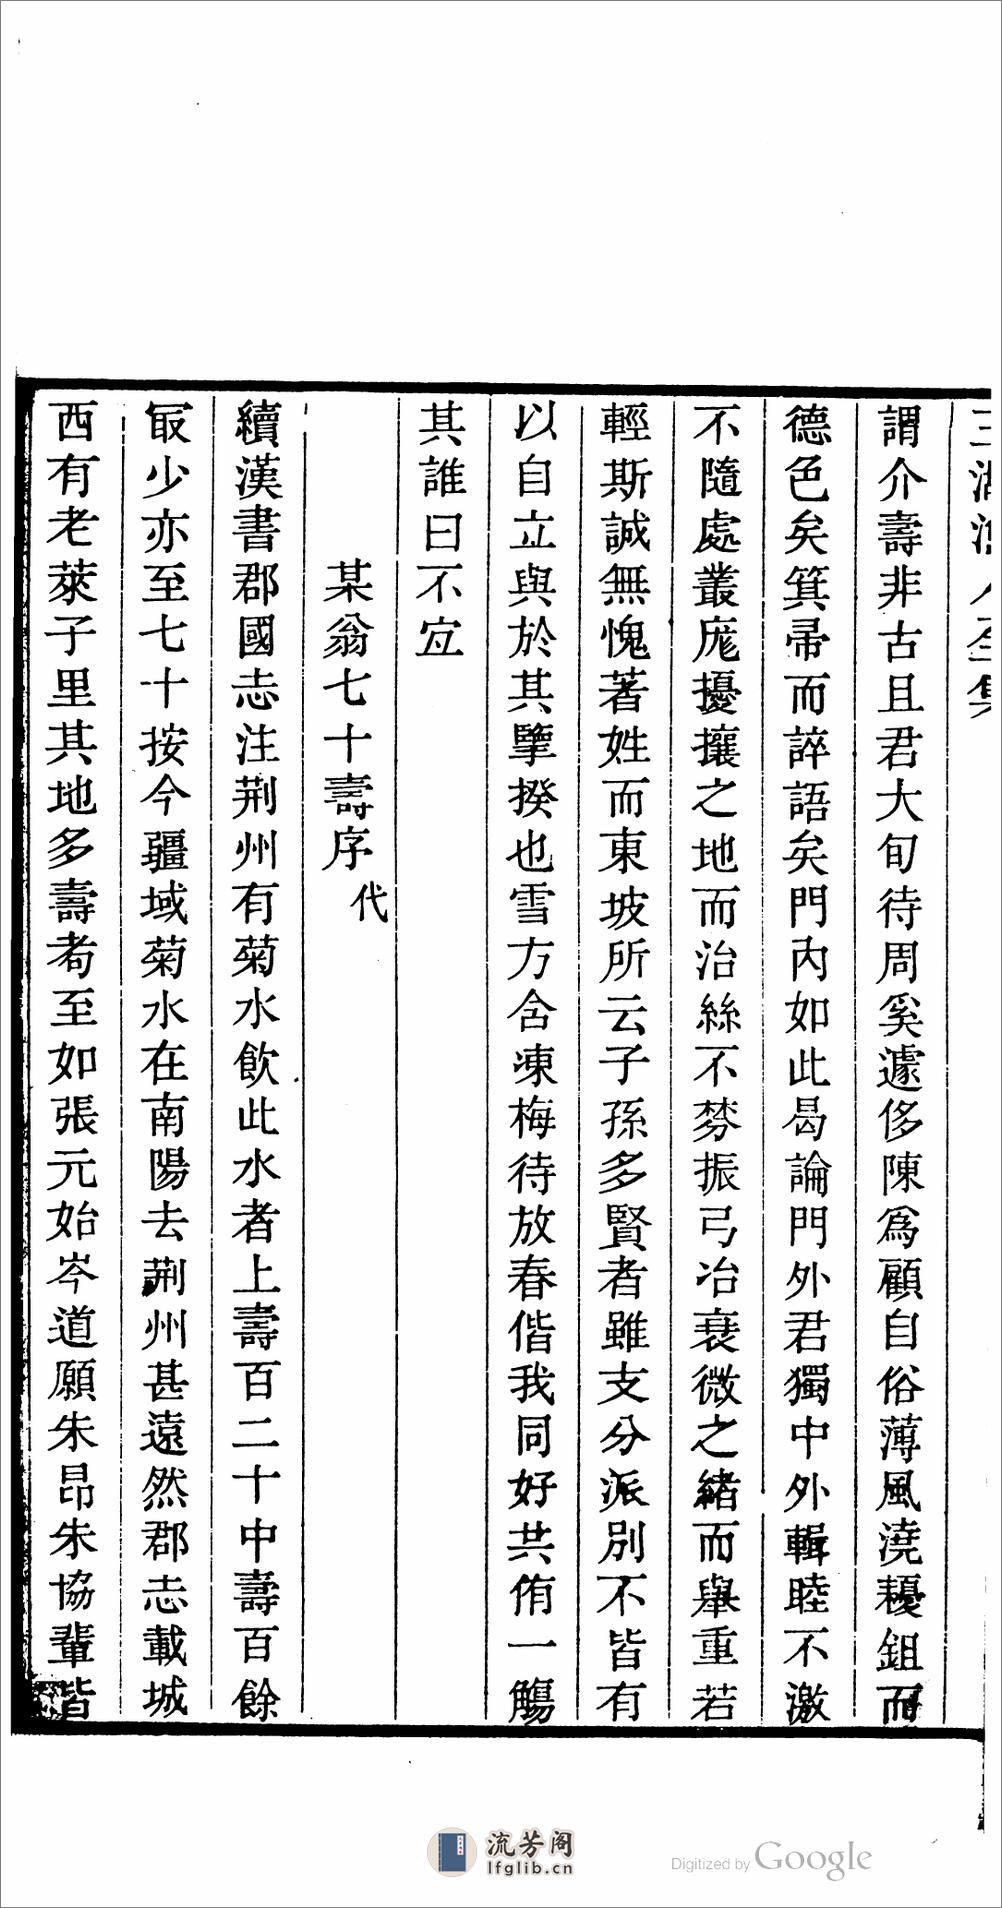 三湖漁人全集
謂介壽非古且君大旬待周奚遽侈陳爲顧自俗薄風澆耰鉏而
德色矣箕帚而誶語矣門內如此曷論門外君獨中外輯睦不激
不隨處叢厖擾攘之地而治絲不棼振弓冶衰微之緒而舉重若
輕斯誠無愧著姓而東坡所云子孫多賢者雖支分派別不皆有
以自立與於其擥揆也雪方含凍梅待放春偕我同好共侑一觴
其誰曰不宜
某翁七十壽序 代
續漢書郡國志注荆州有菊水飲此水者上壽百二十中壽百餘
㝡少亦至七十按今疆域菊水在南陽去荆州甚遠然郡志載城
西有老萊子里其地多壽耇至如張元始岑道願朱昂朱協輩皆
流芳阁
lfglib.cn
Digitized by Google